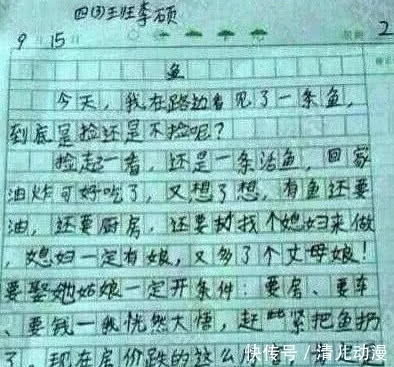 四(3)王旺李硕
9 15 2
鱼
今天,我在路边看见了一条鱼,
到底是捡还是不捡呢?
捡起一看,还是一条活鱼,回家
油炸可好吃了,又想了想,有鱼还要
油,还要厨房,还要找个媳妇来做
,媳妇一定有娘,又多了个丈母娘!
要娶她姑娘一定开条件:要房、要车
、要钱一我恍然大悟,赶紧把鱼扔
了。现在房价跌的这么
快传号/清儿动漫